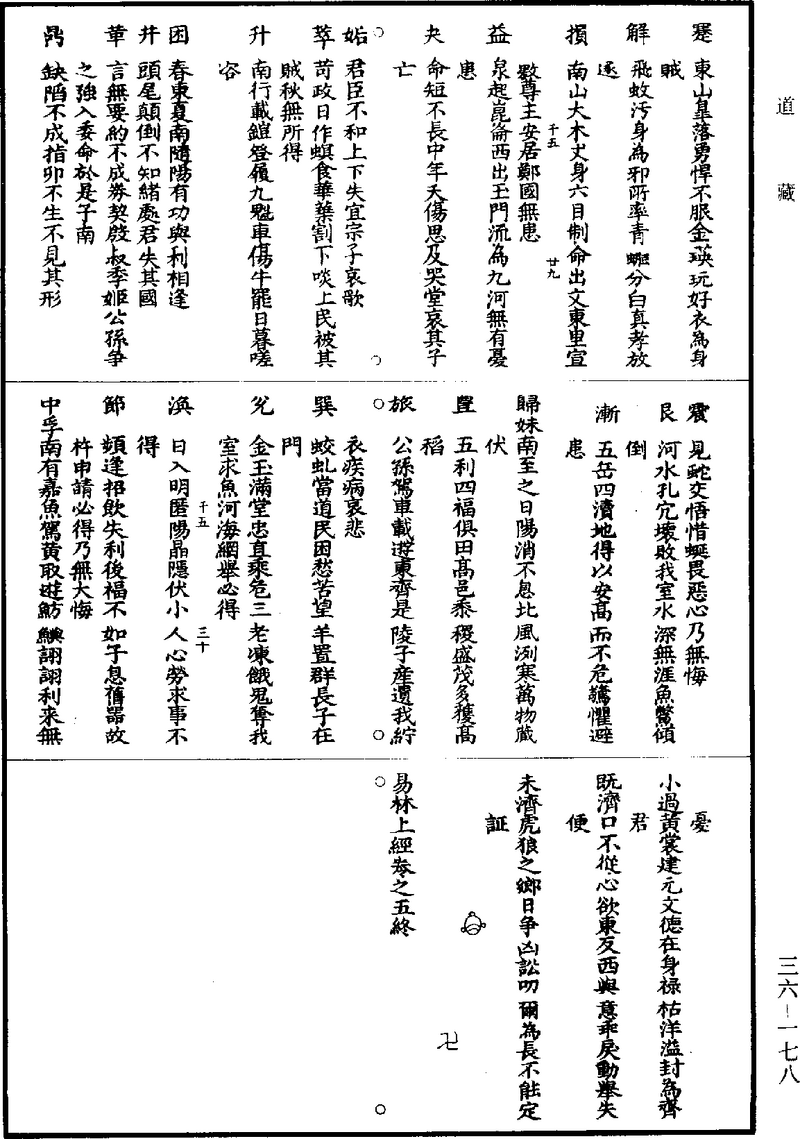 道藏
三六—一七八
蹇　東山皐落勇悍不服金瑛玩好衣為身
賊
解　飛蚊汚身為邪所牽青蠅分白真孝放
逐
損　南山大木丈身六目制命出文東里宣
斁尊主安居鄭國無患
千五
廿九
益　泉起崑崙西出玉門流為九河無有憂
患
夬　命短不長中年夭傷思及哭堂哀其子
亡
姤　君臣不和上下失宜宗子哀歌
萃　苛政日作螟食華葉割下啖上民被其
賊秋無所得
升　南行載鎧登履九魁車傷牛罷日暮嗟
咨
困　春東夏南隨陽有功與利相逢
井　頭尾顛倒不知緒處君失其國
革　言無要約不成券契殷叔季姬公孫争
之強入委命於是子南
鼎　缺䧟不成指卯不生不見其形
震　見蛇交悟惜蜒畏惡心乃無悔
艮　河水孔穴壞敗我室水深無涯魚鱉傾
倒
漸　五岳四瀆地得以安高而不危驚懼避
患
歸妹南至之日陽消不息北風冽寒萬物藏
伏
豐　五利四福俱田高邑黍稷盛茂多穫高
稻
旅　公孫駕車載遊東齊是陵子產遺我紵
衣疾病哀悲
巽　蛟虬當道民困愁苦望羊置群長子在
門
兊　金玉滿堂忠直乘危三老凍餓鬼奪我
室求魚河海網舉必得
渙　日入明匿陽晶隱伏小人心勞求事不
得
千五
三十
節　頻逢招飲失利後福不如子息舊器故
杵申請必得乃無大悔
中孚南有嘉魚駕黄取遊魴鱮詡詡利來無
憂
小過黄裳建元文德在身祿祐洋溢封為齊
君
既濟口不從心欲東反西與意乖戾動舉失
便
未濟虎狼之鄉日争凶訟叨爾為長不能定
証
易林上經卷之五終
卍